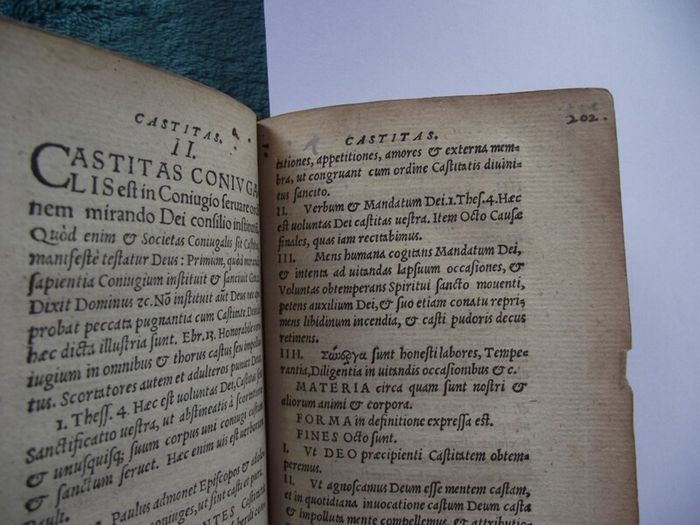 CASTITAS.
II.
CASTITAS CONIVGA
LIS est in Coniugio seruare ordi
nem mirando Dei consilio institutum.
Quòd enim & Societas Coniugalis sit Castitas,
manifestè testatur Deus: Primum, quòd
sapientia Coniugium instituit & sanciuit
Dixit Dominus &c. Nō instituit aūt Deus nec
probat peccata pugnantia cum Castitate.
hæc dicta illustria sunt. Ebr. 13. Honorabile con
iugium in omnibus & thorus castus seu impollu
tus. Scortatores autem et adulteros puniet Deus.
1. Thess. 4. Hæc est voluntas Dei, Castitas seu
Sanctificatio uestra, ut abstineatis à scortatione
& unusquisq; suum corpus uni coniugi castum
& sanctum seruet. Hæc enim uis est uerborum
Pauli.
Paulus admonet Episcopos &
ut sint casti et pure
NTES Castitatis
CASTITAS.
202.
tationes, appetitiones, amores & externa mem-
bra, ut congruant cum ordine Castitatis diuini-
tus sancito.
II. Verbum & Mandatum Dei. 1. Thes. 4. Hæc
est uoluntas Dei castitas uestra. Item Octo Causæ
finales, quas iam recitabimus.
III. Mens humana cogitans Mandatum Dei,
& intenta ad uitandas lapsuum occasiones, &
Voluntas obtemperans Spiritui sancto mouenti,
petens auxilium Dei, & suo etiam conatu repri-
mens libidinum incendia, & casti pudoris decus
retinens.
IIII. Σωόργα sunt honesti labores, Tempe-
rantia, Diligentia in uitandis occasionibus & c.
MATERIA circa quam sunt nostri &
aliorum animi & corpora.
FORMA in definitione expressa est.
FINES Octo sunt.
I. Vt DEO præcipienti Castitatem obtem-
peremus.
II. Vt agnoscamus Deum esse mentem castam,
et in quotidiana inuocatione castum Deum à casta
& impolluta mente compellemus, & attributio